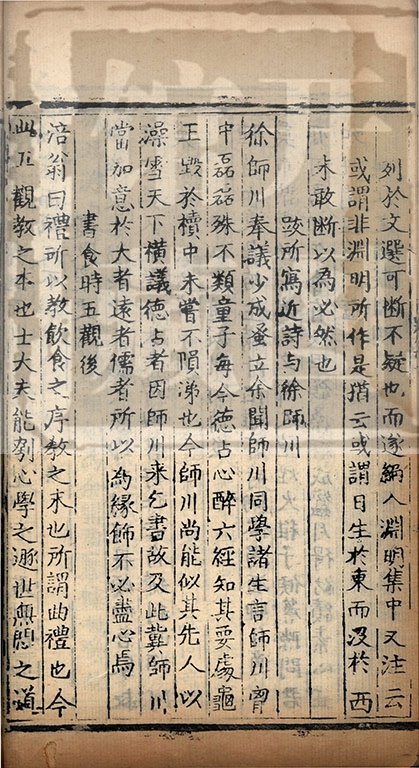 列於文選可斷不疑也而遂編入淵明集中又注云
或謂非淵明所作是猶云或謂日生於東而沒於西
未敢斷以為必然也
跋所寫近詩與徐師川
徐師川奉議少成蚤立余聞師川同學諸生言師川胷
中磊磊殊不類童子每今德占心醉六經知其要處龜
玉毀於櫝中未嘗不隕涕也今師川尚能似其先人以
澡雪天下橫議德占者因師川來乞書故及此冀師川
當加意於大者遠者儒者所以為緣飾不必盡心焉
書食時五觀後
涪翁曰禮所以教飲食之序教之末也所謂曲禮也今
此五觀教之本也士大夫能刳心學之遯世無悶之道